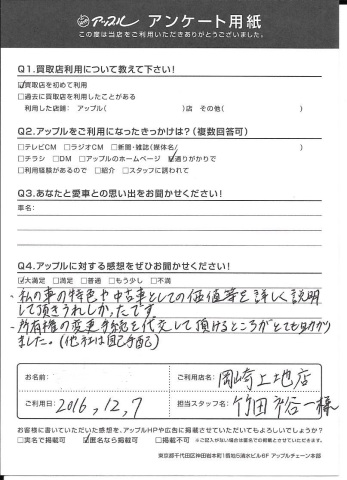 アップル アンケート用紙
この度は当店をご利用いただきありがとうございました。
Q1.買取店利用について教えて下さい!
☑買取店を初めて利用
□過去に買取店を利用したことがある
利用した店舗: アップル( )店 その他( )
Q2.アップルをご利用になったきっかけは?(複数回答可)
□テレビCM □ラジオCM □新聞・雑誌(媒体名/ )
□チラシ □DM □アップルのホームページ ☑通りがかりで
□利用経験があるので □紹介 □スタッフに誘われて
Q3.あなたと愛車との思い出をお聞かせください!
車名:
Q4.アップルに対する感想をぜひお聞かせください!
☑大満足 □満足 □普通 □もう少し □不満
・私の車の特色や中古車としての価値等を詳しく説明
して頂きうれしかったです。
・所有権の変更手続を代交して頂けるところがとても助かり
ました。(他社は自己手配)
お名前:
ご利用店名: 岡崎上地店
ご利用日: 2016,12,7
担当スタッフ名: 竹田裕一様
お客様に書いていただいた感想を、アップルHPや広告に掲載させていただいてもよろしいでしょうか?
□実名で掲載可 ☑匿名なら掲載可 □掲載不可 ※ご記入がない場合は匿名での掲載とさせていただきます。
東京都千代田区神田岩本町1番地5清水ビル6F アップルチェーン本部